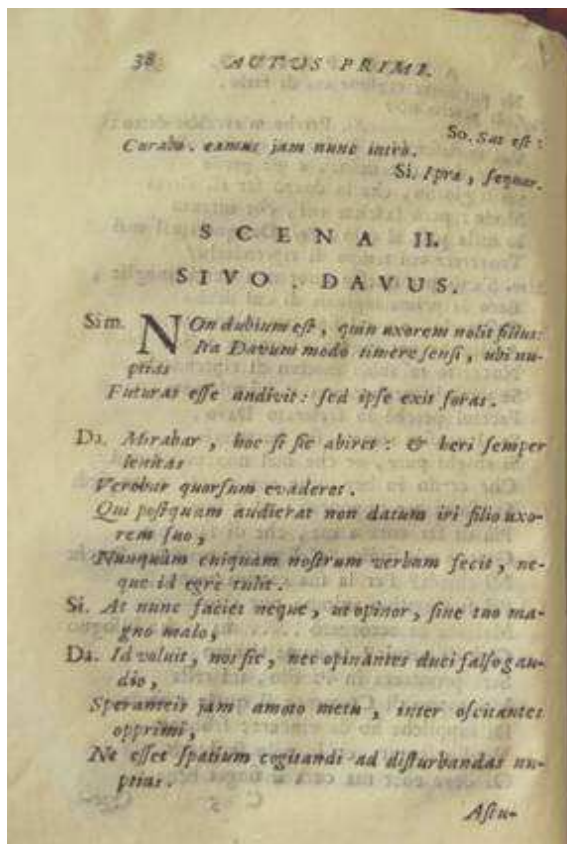 38 ACTUS PRIMI.
So. Sat eſt:
Curabo. eamus jam nunc intro.
Si. I prae, ſequar.
SCENA II.
SIMO. DAVUS.
Sim. NOn dubium eſt, quin uxorem nolit filius:
Ita Davum modo timere ſenſi, ubi nu-
ptias
Futuras eſſe audivit: ſed ipſe exit foras.
Da. Mirabar, hoc ſi ſic abiret: & heri ſemper
lenitas
Verebar quorſum evaderet.
Qui poſtquam audierat non datum iri filio uxo-
rem ſuo,
Nunquam cuiquam noſtrum verbum fecit, ne-
que id egre tulit.
Si. At nunc faciet neque, ut opinor, ſine tuo ma-
gno malo,
Da. Id voluit, nos ſic, nec opinantes duci falſo gau-
dio,
Speranteis jam amoto metu, inter oſcitantes
opprimi,
Ne eſſet ſpatium cogitandi ad diſturbandas nu-
ptias.
Aſtu-